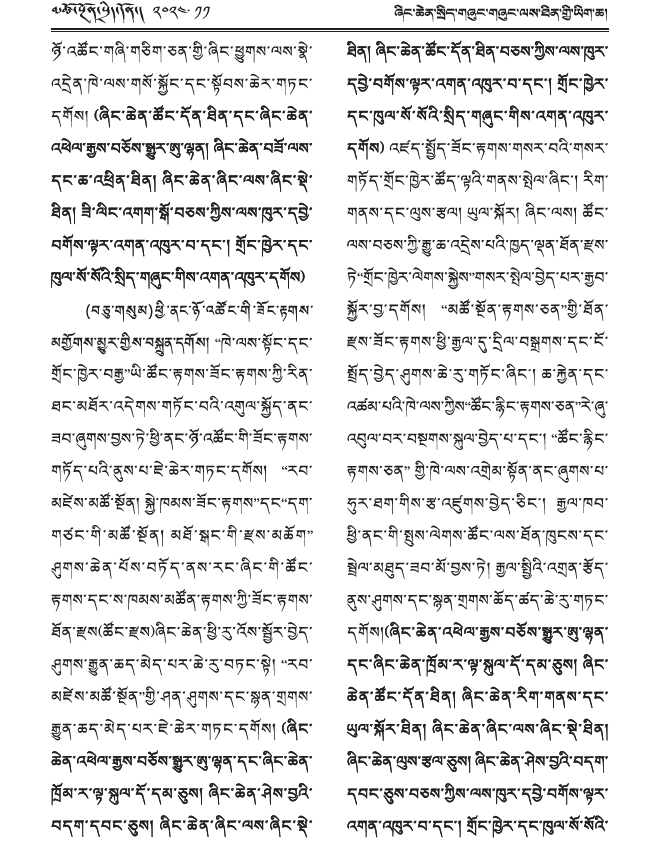 མཚོ་སྔོན་སྲིད་གཞུང་།། ༢༠༢༤.༡༡
ཞིང་ཆེན་སྲིད་གཞུང་གཞུང་ལས་ཐིན་གྱི་ཡིག་ཆ།
ཉོ་འཚོང་གཞི་གཅིག་ཅན་གྱི་ཞིང་ཕྱུགས་ལས་སྣེ་
འདྲེན་ཁེ་ལས་གསོ་སྐྱོང་དང་སྟོབས་ཆེར་གཏང་
དགོས། (ཞིང་ཆེན་ཚོང་དོན་ཐིན་དང་ཞིང་ཆེན་
འཕེལ་རྒྱས་བཅོས་སྒྱུར་ཨུ་ལྷན། ཞིང་ཆེན་བཟོ་ལས་
དང་ཆ་འཕྲིན་ཐིན། ཞིང་ཆེན་ཞིང་ལས་ཞིང་སྡེ་
ཐིན། ཟི་ལིང་འགག་སྒོ་བཅས་ཀྱིས་ལས་ཁུར་དབྱེ་
བགོས་ལྟར་འགན་འཁུར་བ་དང་། གྲོང་ཁྱེར་དང་
ཁུལ་སོ་སོའི་སྲིད་གཞུང་གིས་འགན་འཁུར་དགོས)
(བཅུ་གསུམ)ཕྱི་ནང་ཉོ་འཚོང་གི་ཟོང་རྟགས་
མགྱོགས་མྱུར་གྱིས་བསྐྲུན་དགོས། “ཁེ་ལས་སྟོང་དང་
གྲོང་ཁྱེར་བརྒྱ”ཡི་ཚོང་རྟགས་ཟོང་རྟགས་ཀྱི་རིན་
ཐང་མཐོར་འདེགས་གཏོང་བའི་འགུལ་སྐྱོད་ནང་
ཟབ་ཞུགས་བྱས་ཏེ་ཕྱི་ནང་ཉོ་འཚོང་གི་ཟོང་རྟགས་
གཏོད་པའི་ནུས་པ་ཇེ་ཆེར་གཏང་དགོས། “རབ་
མཛེས་མཚོ་སྔོན། སྐྱེ་ཁམས་ཟོང་རྟགས”དང“དག་
གཙང་གི་མཚོ་སྔོན། མཐོ་སྒང་གི་རྫས་མཆོག”
ཤུགས་ཆེན་པོས་བཏོད་ནས་རང་ཞིང་གི་ཚོང་
རྟགས་དང་ས་ཁམས་མཚོན་རྟགས་ཀྱི་ཟོང་རྟགས་
ཐོན་རྫས(ཚོང་རྫས)ཞིང་ཆེན་ཕྱི་རུ་འོས་སྦྱོར་བྱེད་
ཤུགས་རྒྱུན་ཆད་མེད་པར་ཆེ་རུ་བཏང་སྟེ། “རབ་
མཛེས་མཚོ་སྔོན”གྱི་ཤན་ཤུགས་དང་སྙན་གྲགས་
རྒྱུན་ཆད་མེད་པར་ཇེ་ཆེར་གཏང་དགོས། (ཞིང་
ཆེན་འཕེལ་རྒྱས་བཅོས་སྒྱུར་ཨུ་ལྷན་དང་ཞིང་ཆེན་
ཁྲོམ་ར་ལྟ་སྐུལ་དོ་དམ་ཅུས། ཞིང་ཆེན་ཤེས་བྱའི་
བདག་དབང་ཅུས། ཞིང་ཆེན་ཞིང་ལས་ཞིང་སྡེ་
ཐིན། ཞིང་ཆེན་ཚོང་དོན་ཐིན་བཅས་ཀྱིས་ལས་ཁུར་
དབྱེ་བགོས་ལྟར་འགན་འཁུར་བ་དང་། གྲོང་ཁྱེར་
དང་ཁུལ་སོ་སོའི་སྲིད་གཞུང་གིས་འགན་འཁུར་
དགོས) འཛད་སྤྱོད་ཟོང་རྟགས་གསར་བའི་གསར་
གཏོད་གྲོང་ཁྱེར་ཚོད་ལྟའི་གནས་སྤེལ་ཞིང་། རིག་
གནས་དང་ལུས་རྩལ། ཡུལ་སྐོར། ཞིང་ལས། ཚོང་
ལས་བཅས་ཀྱི་རྒྱུ་ཆ་འདྲེས་པའི་ཁྱད་ལྡན་ཐོན་རྫས་
ཏེ“གྲོང་ཁྱེར་ལེགས་སྐྱེས”གསར་སྤེལ་བྱེད་པར་རྒྱབ་
སྐྱོར་བྱ་དགོས། “མཚོ་སྔོན་རྟགས་ཅན”གྱི་ཐོན་
རྫས་ཟོང་རྟགས་ཕྱི་རྒྱལ་དུ་དྲིལ་བསྒྲགས་དང་ངོ་
སྤྲོད་བྱེད་ཤུགས་ཆེ་རུ་གཏོང་ཞིང་། ཆ་རྐྱེན་དང་
འཚམ་པའི་ཁེ་ལས་ཀྱིས“ཚོང་རྙིང་རྟགས་ཅན”རེ་ཞུ་
འབུལ་བར་བསྔགས་སྐུལ་བྱེད་པ་དང་། “ཚོང་རྙིང་
རྟགས་ཅན” གྱི་ཁེ་ལས་འགྲེམ་སྟོན་ནང་ཞུགས་པ་
ཧུར་ཐག་གིས་རྩ་འཛུགས་བྱེད་ཅིང་། རྒྱལ་ཁབ་
ཕྱི་ནང་གི་སྤུས་ལེགས་ཚོང་ལས་ཐོན་ཁུངས་དང་
སྦྲེལ་མཐུད་ཟབ་མོ་བྱས་ཏེ། རྒྱལ་སྤྱིའི་འགྲན་རྩོད་
ནུས་ཤུགས་དང་སྙན་གྲགས་ཚོད་ཚད་ཆེ་རུ་གཏང་
དགོས།(ཞིང་ཆེན་འཕེལ་རྒྱས་བཅོས་སྒྱུར་ཨུ་ལྷན་
དང་ཞིང་ཆེན་ཁྲོམ་ར་ལྟ་སྐུལ་དོ་དམ་ཅུས། ཞིང་
ཆེན་ཚོང་དོན་ཐིན། ཞིང་ཆེན་རིག་གནས་དང་
ཡུལ་སྐོར་ཐིན། ཞིང་ཆེན་ཞིང་ལས་ཞིང་སྡེ་ཐིན།
ཞིང་ཆེན་ལུས་རྩལ་ཅུས། ཞིང་ཆེན་ཤེས་བྱའི་བདག་
དབང་ཅུས་བཅས་ཀྱིས་ལས་ཁུར་དབྱེ་བགོས་ལྟར་
འགན་འཁུར་བ་དང་། གྲོང་ཁྱེར་དང་ཁུལ་སོ་སོའི་